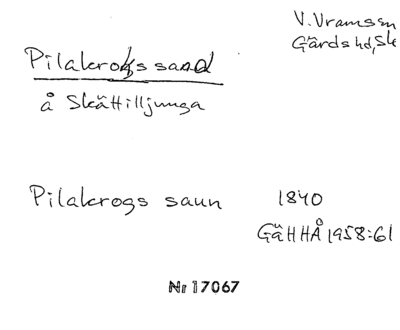 V. Vramsm
Gärds hd, Sk
Pilakrogssand
å Skättilljunga
Pilakrogs saun 1840
GäHHÅ 1958:61
Nr 17067